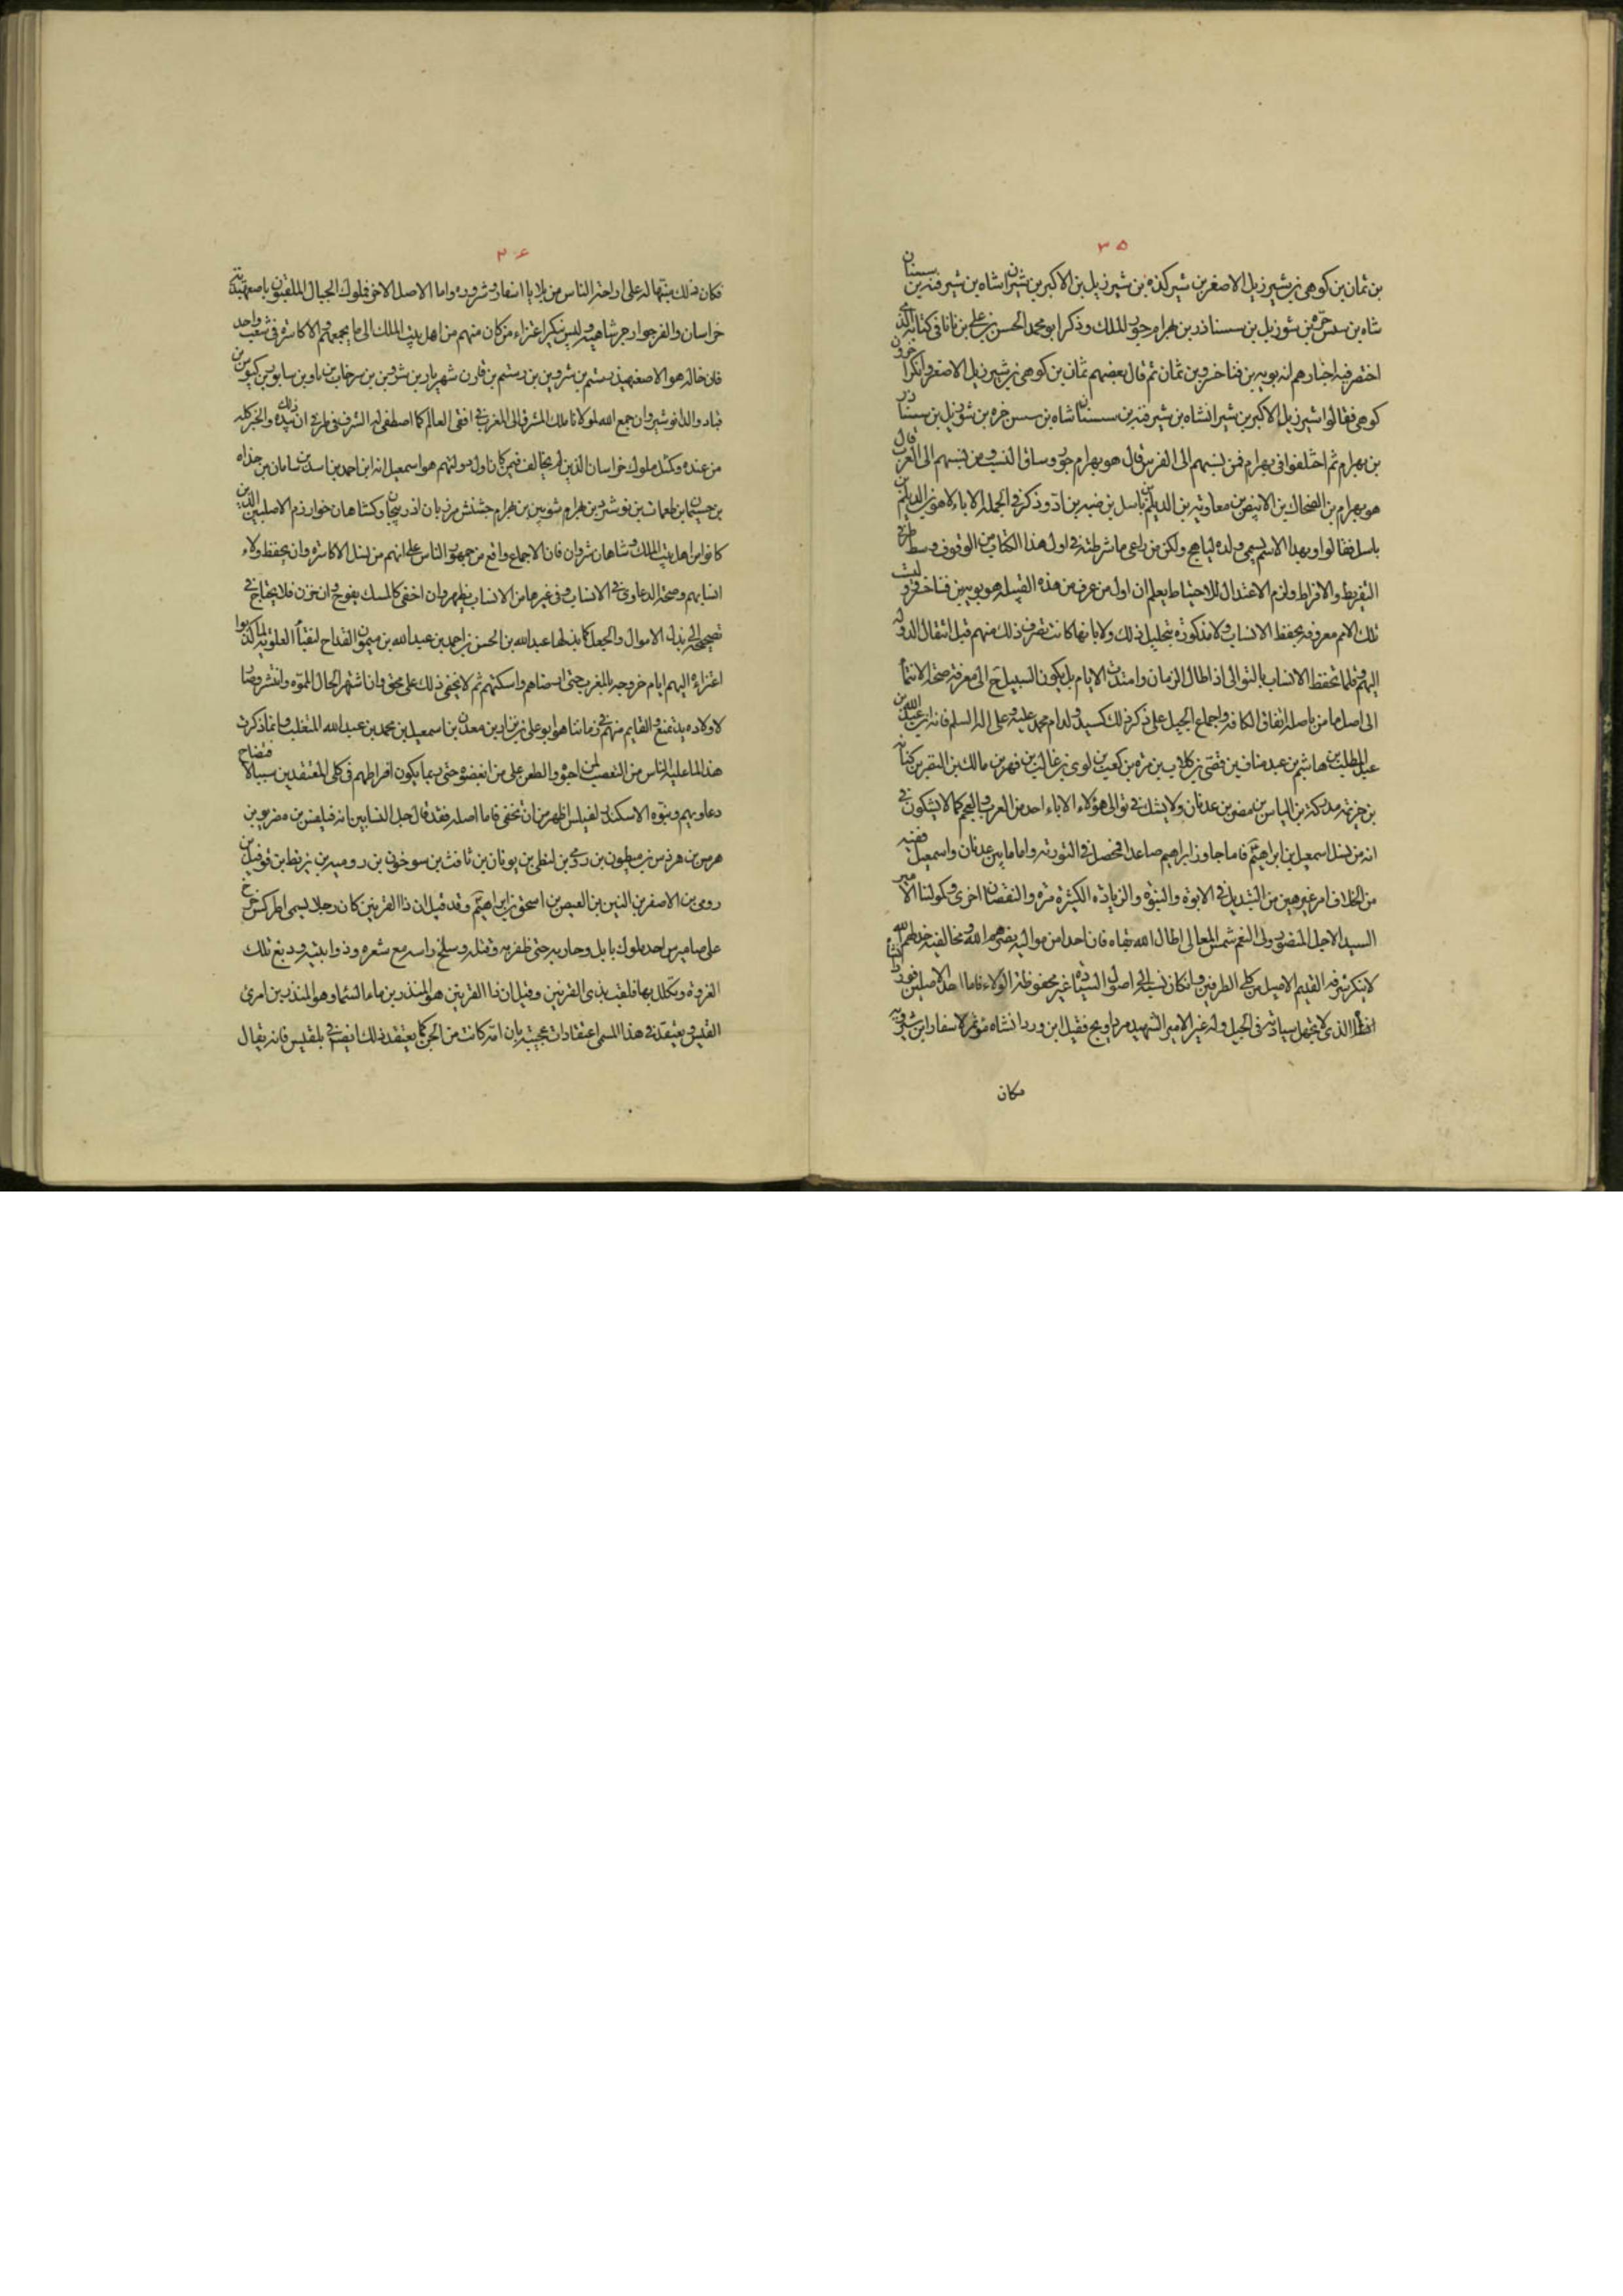 ٣٥
بن ثمان بن كوهى بن شيرزيل الاصغر بن شيركذه بن شيرزيل بن الاكبر بن شيران شاه بن شيرفنه بن سسنان
شاه بن سسن خره بن شوزيل بن سسناذر بن بهرام جور الملك وذكر ابو محمد الحسن بن على بن نانا فى كتابه الذى
اختصر فيه اخبارهم انه بويه بن فناخرو بن ثمان ثم قال بعضهم ثمان بن كوهى بن شيرزيل الاصغر وانكر اخرون
كوهى فقالوا شيرزيل الاكبر بن شيرانشاه بن شيرفنه بن سسنان شاه بن سسن خره بن شوزيل بن سسناذر
بن بهرام ثم اختلفوا فى بهرام فمن نسبهم الى الفرس قال هو بهرام جور وساق النسب ومن نسبهم الى العرب قال
هو بهرام بن الضحاك بن الابيض بن معاوية بن الديلم بن باسل بن ضبه بن اد وذكر فى الجملة الاباء لاهو بن الديلم بن
باسل فقالوا وبهذا الاسم يسمى ولده لياهج ولكن من راعى ما شرطته فى اول هذا الكتاب من الوقوف وسط طرفى
التفريط والافراط ولزم الاعتدال للاحتياط يعلم ان اول من عرف من هذه القبيلة هو بويه بن فناخرو وليست
تلك الامم معروفة بحفظ الانساب ولا مذكورة بتخليل ذلك ولا بانها كانت تعرف ذلك منهم قبل انتقال الدولة
اليهم وقلما تحفظ الانساب بالتوالى اذا طال الزمان وامتدت الايام بل يكون السبيل ح الى معرفة صحة الانتماء
الى اصل ما من باصله اتفاق الكافة واجماع الجيل على ذكر ذلك كسيد ولد ادم محمد عليه وعلى اله السلم فانه ابن عبد الله بن
عبد المطلب بن هاشم بن عبد مناف بن قصى بن كلاب بن مره بن كعب بن لوى بن غالب بن فهر بن مالك بن النضر بن كنانه
بن خزيمه بن مدركة بن الياس بن مضر بن عدنان ولا يشك فى توالى هؤلاء الاباء احد من العرب والعجم كما لا يشكون فى
انه من نسل اسمعيل بن ابراهيم فاما ما جاوز ابراهيم صاعدا فمحصل فى التورية واما ما بين عدنان واسمعيل ففيه
من الخلاف امر غير هين من التبديل فى الابوة والبنوة والزيادة الكثيرة مرة والنقصان اخرى وكمولنا الامير
السيد الاجل المنصور ولى النعم شمس المعالى اطال الله بقاه فان احدا من مواليه نصرهم الله ومخالفيه خذلهم الله
لا ينكر شرفه القديم الاصيل من كلى الطرفين وان كان نسبه الى اصول السيادة غير محفوظ الولاء فاما احد الاصلين فوردانشاه
الذى لا يجهل سيادته فى الجيل وله غير الامير الشهيد مرداويج فقيل ابن وردانشاه مؤثر لاسفار ابن شيرويه
مكان
٣٦
فكان ذلك منبها له على اراحة الناس من بلايا اسفار وشروره واما الاصل الاخر فملوك الجبال الملقبون باصفهبذيه
خراسان والفرجوارجرشاهيه وليس نكير اعتزاء من كان منهم من اهل بيت الملك الى ما يجمعهم والاكاسرة فى شعب واحد
فان خاله هو الاصفهبذ رستم بن شروين بن رستم بن قارن بن شهريار بن شروين بن سرخاب بن باو بن سابور بن كيوس بن
قباد والد انوشيروان جمع الله لمولانا ملك المشرق الى المغرب فى افق العالم كما اصطفى له الشرف فى طرفى ان ذلك بيده والخير كله
من عنده وكمثل ملوك خراسان الذين لم يخالف فيمن كان اول دولتهم هو اسمعيل انه ابن احمد بن اسد بن سامان بن خذاه
بن جسيمان بن طغمات بن نوشرد بن بهرام شوبين بن بهرام جشنش مرزبان اذربيجان وكمشاهان خوارزم الاصليين الذين
كانوا من اهل بيت الملك وشاهان شروان فان الاجماع واقع من جمهور الناس على انهم من نسل الاكاسرة وان لم يحفظ ولاء
انسابهم وصحة الدعاوى فى الانساب وفى غيرها من الانساب يظهر وان اخفى كالمسك يفوح وان خزن فلا يحتاج فى
تصحيحه الى بذل الاموال والجعل كما بذلها عبيد الله بن الحسن بن احمد بن عبد الله بن ميمون القداح لنقباء العلوية لما كذبوا
اعتزاءه اليهم ايام خروجه بالمغرب حتى ارضاهم واسكتهم ثم لا يخفى ذلك على محق وان اشتهر الحال المموه وانتشر وصار
لاولاده يد تمنع والقايم منهم فى زماننا هو ابو على بن نزار بن معد بن اسمعيل بن محمد بن عبيد الله المتغلب وانما ذكرت
هذا لما عليه الناس من التعصب لمن احبوه والطعن على من ابغضوه حتى ربما يكون افراطهم فى كلى المعتقدين سببا لافتضاح
دعاويهم وبنوه الاسكندر لفيلس اظهر من ان تخفى فاما اصله فقد قال جل النسابين انه فيلفس بن مضربو بن
هرمس بن هردس بن ميطون بن رومى بن لنطى بن يونان بن يافث بن سوخون بن روميه بن بزنط بن توفيل بن
رومى بن الاصفر بن اليفز بن العيص بن اسحق بن ابراهيم وقد قيل ان ذا القرنين كان رجلا يسمى اطركس خرج
على صاميرس احد ملوك بابل وحاربه حتى ظفر به وقتله وسلخ راسه مع شعره وذوابتيه ودبغ تلك
الفروة وتكلل بها فلقب بذى القرنين وقيل ان ذا القرنين هو المنذر بن ماء السماء وهو المنذر بن امرئ
القيس ويعتقد فى هذا المسمى اعتقادات عجيبة بان امه كانت من الجن كما يعتقد ذلك ايضا فى بلقيس فانه يقال